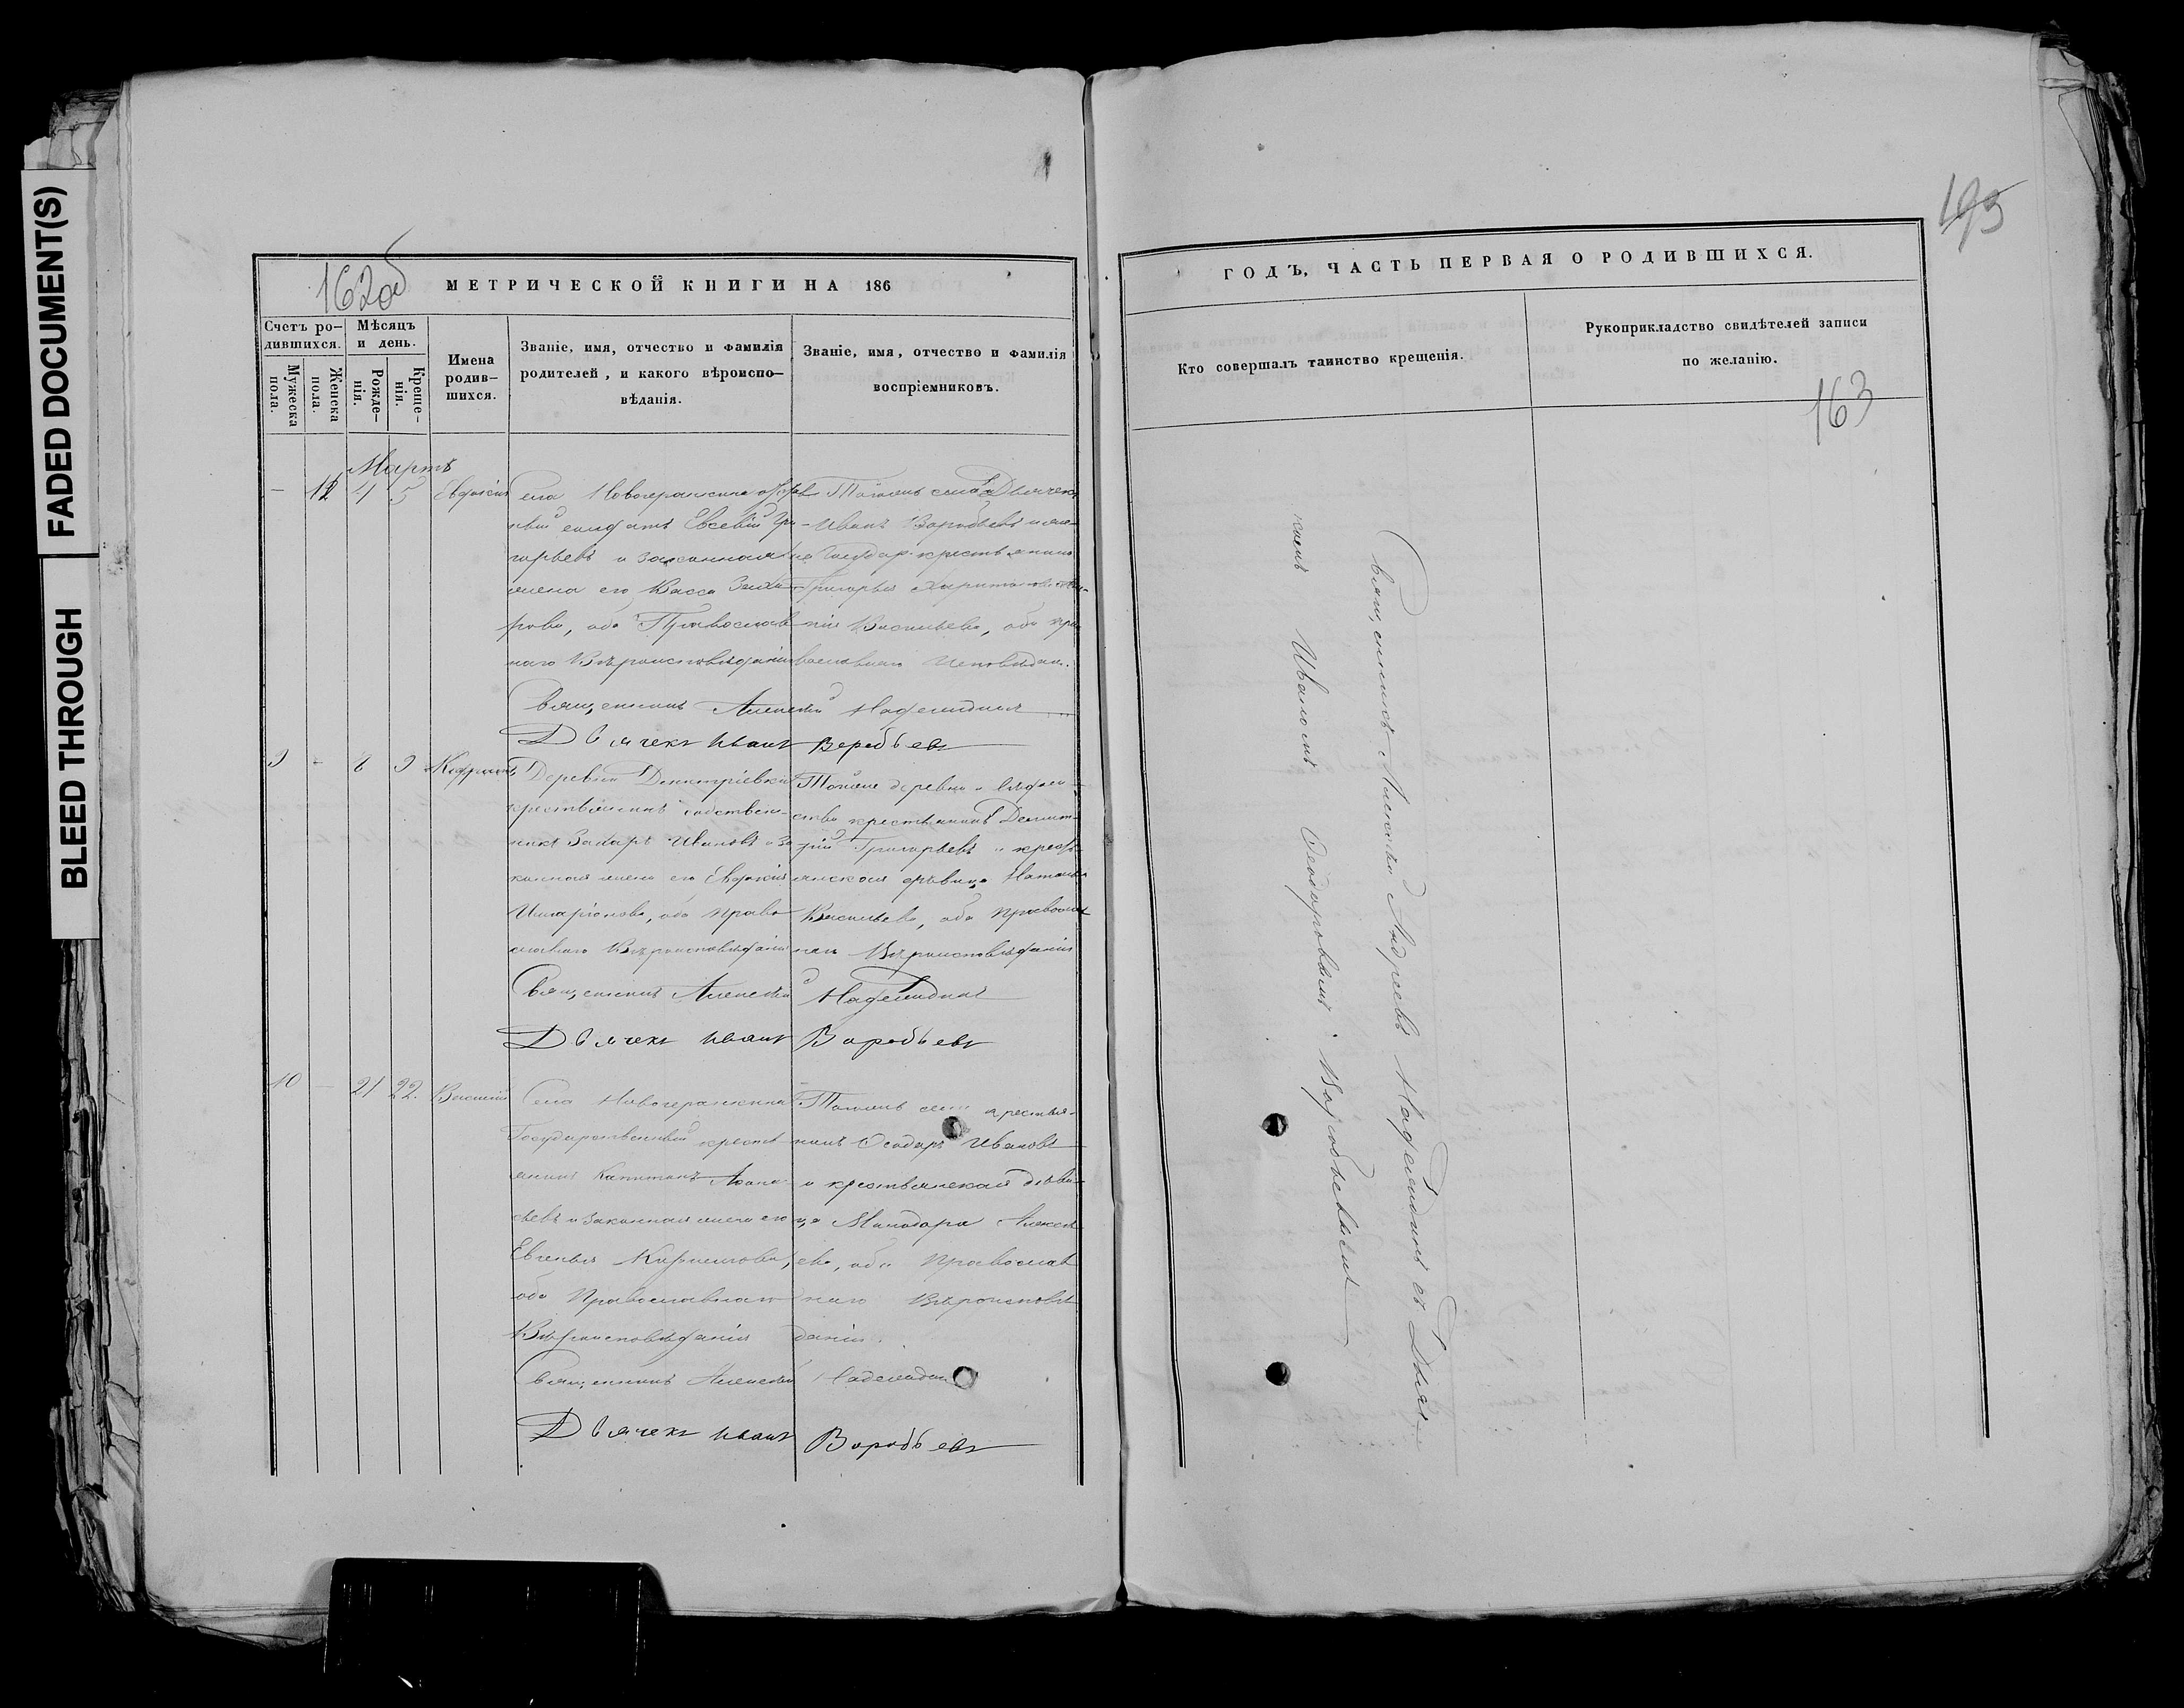 FADED DOCUMENT(S)
BLEED THROUGH
162об
МЕТРИЧЕСКОЙ КНИГИ НА 186
Счетъ ро-
дившихся.
Мужеска
пола.
Женска
пола.
Мѣсяцъ
и день.
Рожде-
нія.
Креще-
нія.
Имена
родив-
шихся.
Званіе, имя, отчество и фамилія
родителей, и какого вѣроиспо-
вѣданія.
Званіе, имя, отчество и фамилія
воспріемниковъ.
Мартъ
- 12 4 5 Евдокія
Села
Евсевій Гри-
горьевъ и законная
жена его Васса
рова, оба Православ
наго Вѣроисповѣданія
Тогоже села Дьячекъ
Иванъ Воробьевъ и
Государ. крестьянина
Григорья Харитонова
Васильева, оба пра
вославнаго исповѣдан.
Священникъ Алексѣй Надеждинъ
Дьячекъ Иванъ Воробьевъ
9 - 8 9
Деревни Димитріевки
крестьянинъ собствен-
никъ Захаръ Ивановъ и за
конная жена его Евдокія
Иларіонова, оба право
славнаго Вѣроисповѣданія
Тойже деревни
крестьянинъ Димит-
рій Григорьевъ и кресть
янская дѣвица Наталья
Васильева, оба православ
наго Вѣроисповѣданія
Священникъ Алексѣй Надеждинъ
Дьячекъ Иванъ Воробьевъ
10 - 21 22. Василій
Села
Государственный кресть
янинъ Капитонъ Аѳана
сьевъ и законная жена его
Евгенія Кириллова,
оба Православнаго
Вѣроисповѣданія
Тогоже села крестья-
нинъ Ѳеодоръ Ивановъ
и крестьянская дѣви
ца Минодора Алексѣ
ева, оба Православ
наго Вѣроисповѣ
данія.
Священникъ Алексѣй Надеждинъ
Дьячекъ Иванъ Воробьевъ
195
ГОДЪ, ЧАСТЬ ПЕРВАЯ О РОДИВШИХСЯ.
Кто совершалъ таинство крещенія.
Рукоприкладство свидѣтелей записи
по желанію.
163
Священникъ Алексѣй Андреевъ Надеждинъ съ Дьяч-
комъ Иваномъ Ѳеодоровымъ Воробьевымъ